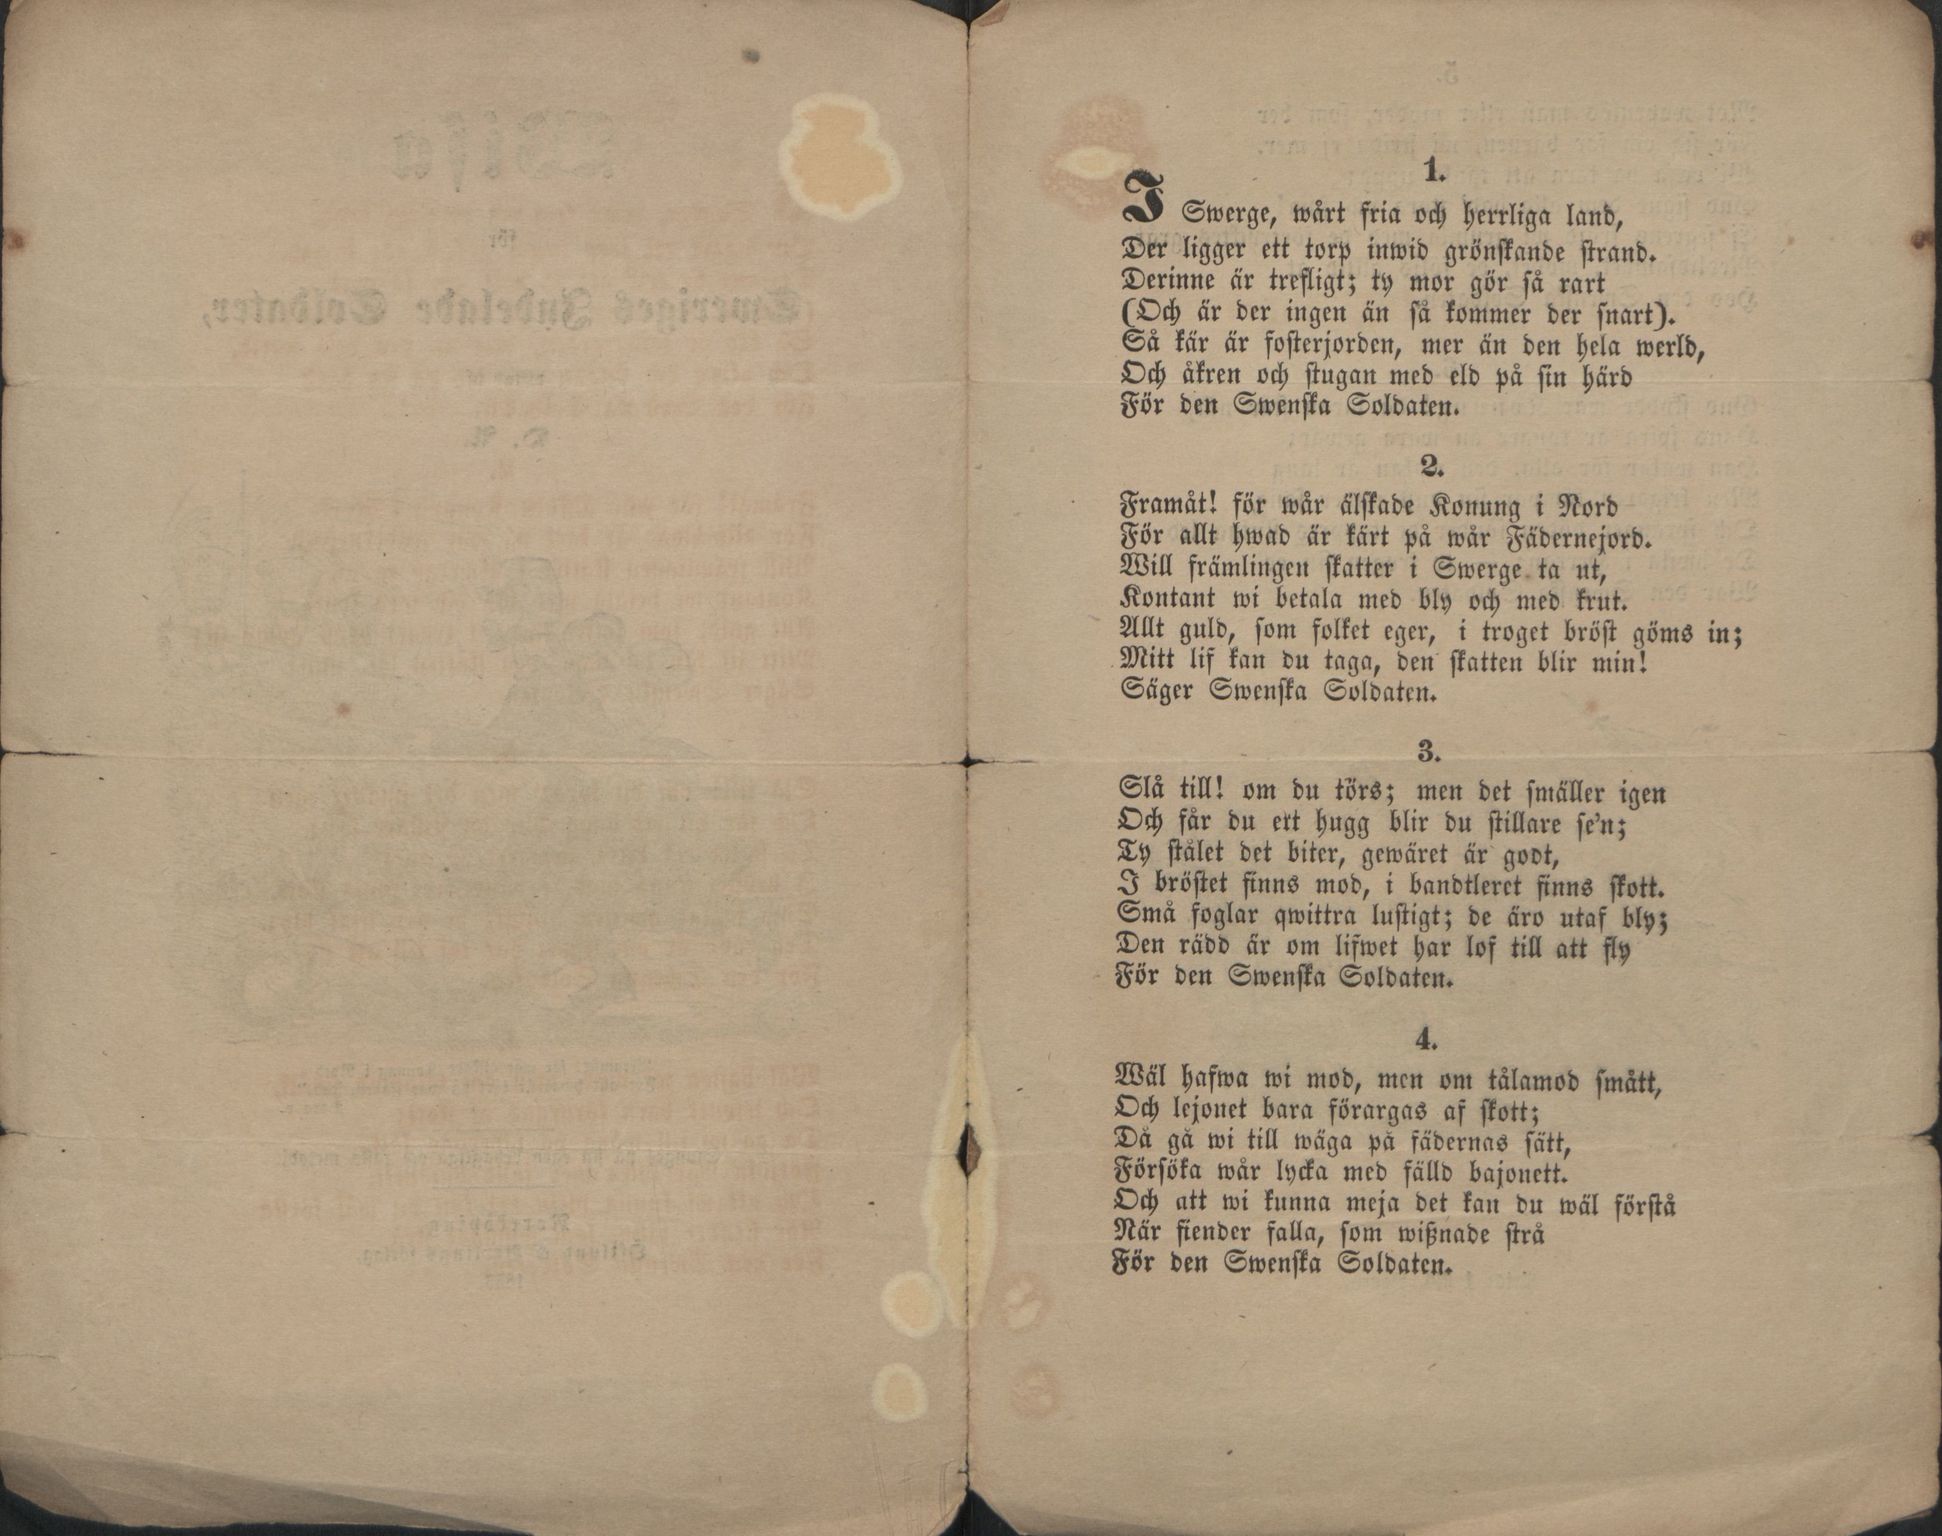 1.
I Swerge, wårt fria och herrliga land,
Der ligger ett torp inwid grönskande strand.
Derinne är trefligt; ty mor gör så rart
(Och är der ingen än så kommer der snart).
Så kär är fosterjorden, mer än den hela werld,
Och åkren och stugan med eld på sin härd
För den Swenska Soldaten.
2.
Framåt! för wår älskade Konung i Nord
För allt hwad är kärt på wår Fädernejord.
Will främlingen skatter i Swerge ta ut,
Kontant wi betala med bly och med krut.
Allt guld, som folket eger, i troget bröst göms in;
Mitt lif kan du taga, den skatten blir min!
Säger Swenska Soldaten.
3.
Slå till! om du törs; men det smäller igen
Och får du ett hugg blir du stillare se'n;
Ty stålet det biter, gewäret är godt,
I bröstet finns mod, i bandtleret finns skott.
Små foglar qwittra lustigt; de äro utaf bly;
Den rädd är om lifwet har lof till att fly
För den Swenska Soldaten.
4.
Wäl hafwa wi mod, men om tålamod smått,
Och lejonet bara förargas af skott;
Då gå wi till wäga på fädernas sätt,
Försöka wår lycka med fälld bajonett.
Och att wi kunna meja det kan du wäl förstå
När fiender falla, som wißnade strå
För den Swenska Soldaten.